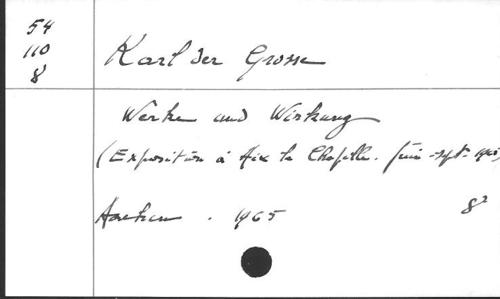 54
110
8
Karl der Grosse
Werke und Wirkung
(Exposition à Aix la Chapelle. juin-sept. 1965)
Aachen . 1965
8°